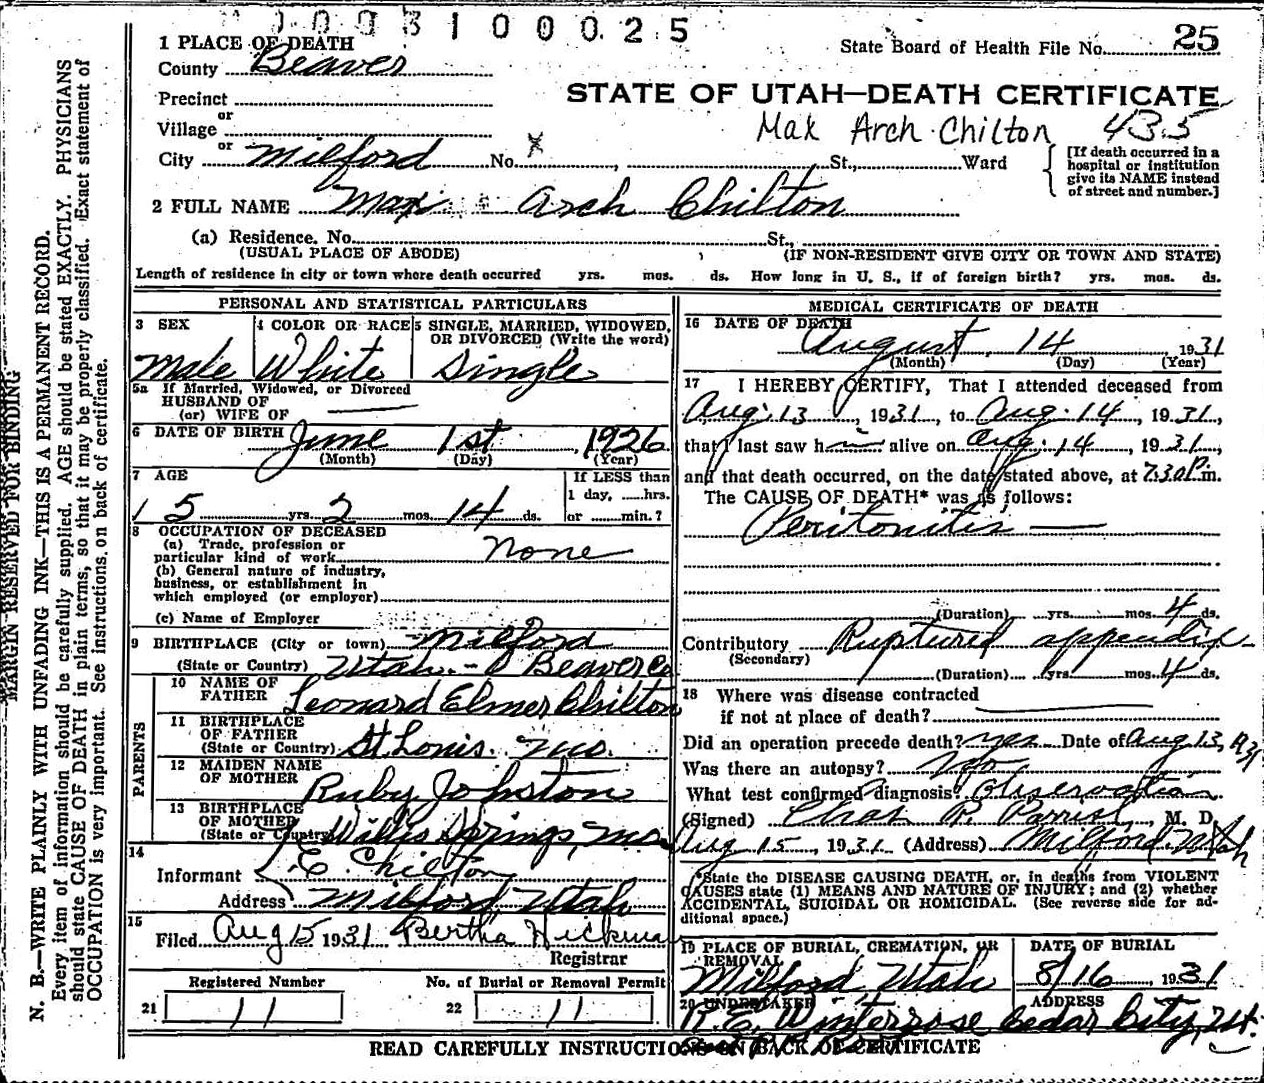 003100025
State Board of Health File No. 25
1 PLACE OF DEATH
County Beaver
STATE OF UTAH—DEATH CERTIFICATE
Precinct
or
Village
Max Arch Chilton 435
or
City Milford No. x , St., Ward
[If death occurred in a hospital or institution give its NAME instead of street and number.]
2 FULL NAME Max Arch Chilton
(a) Residence. No. St.,
(USUAL PLACE OF ABODE) (IF NON-RESIDENT GIVE CITY OR TOWN AND STATE)
Length of residence in city or town where death occurred yrs. mos. ds. How long in U. S., if of foreign birth? yrs. mos. ds.
PERSONAL AND STATISTICAL PARTICULARS
3 SEX
Male
4 COLOR OR RACE
White
5 SINGLE, MARRIED, WIDOWED, OR DIVORCED (Write the word)
Single
5a If Married, Widowed, or Divorced
HUSBAND OF
(or) WIFE OF
6 DATE OF BIRTH June 1st, 1926
(Month) (Day) (Year)
7 AGE
5 yrs. 2 mos. 14 ds.
If LESS than
1 day, ......hrs.
or ......min.?
8 OCCUPATION OF DECEASED
(a) Trade, profession or
particular kind of work None
(b) General nature of industry,
business, or establishment in
which employed (or employer)
(c) Name of Employer
9 BIRTHPLACE (City or town) Milford
(State or Country) Utah. - Beaver Co
PARENTS
10 NAME OF FATHER Leonard Elmer Chilton
11 BIRTHPLACE OF FATHER
(State or Country) St Louis. Mo.
12 MAIDEN NAME OF MOTHER Ruby Johnston
13 BIRTHPLACE OF MOTHER
(State or Country) Willis Springs, Mo.
14
Informant L. E. Chilton
Address Milford Utah
15
Filed Aug 15 1931 Bertha Hickman
Registrar
Registered Number
21 11
No. of Burial or Removal Permit
22 11
MEDICAL CERTIFICATE OF DEATH
16 DATE OF DEATH
August, 14 1931
(Month) (Day) (Year)
17 I HEREBY CERTIFY, That I attended deceased from
Aug. 13, 1931, to Aug. 14, 1931,
that I last saw him alive on Aug. 14, 1931,
and that death occurred, on the date stated above, at 7.30 P.m.
The CAUSE OF DEATH* was as follows:
Peritonitis
(Duration) yrs. mos. 4 ds.
Contributory Ruptured appendix
(Secondary)
(Duration) yrs. mos. 4 ds.
18 Where was disease contracted
if not at place of death?
Did an operation precede death? yes Date of Aug 13, 1931
Was there an autopsy? No
What test confirmed diagnosis? Observation
(Signed) Chas W. Parrish, M. D.
Aug 15, 1931 (Address) Milford. Utah
*State the DISEASE CAUSING DEATH, or, in deaths from VIOLENT
CAUSES state (1) MEANS AND NATURE OF INJURY; and (2) whether
ACCIDENTAL, SUICIDAL OR HOMICIDAL. (See reverse side for ad-
ditional space.)
19 PLACE OF BURIAL, CREMATION, OR REMOVAL
Milford Utah
DATE OF BURIAL
8/16, 1931
20 UNDERTAKER
R. E. Winterrose
ADDRESS
Cedar City, Ut.
READ CAREFULLY INSTRUCTIONS ON BACK OF CERTIFICATE
MARGIN RESERVED FOR BINDING
N. B.—WRITE PLAINLY WITH UNFADING INK—THIS IS A PERMANENT RECORD.
Every item of information should be carefully supplied. AGE should be stated EXACTLY. PHYSICIANS
should state CAUSE OF DEATH in plain terms, so that it may be properly classified. Exact statement of
OCCUPATION is very important. See instructions on back of certificate.